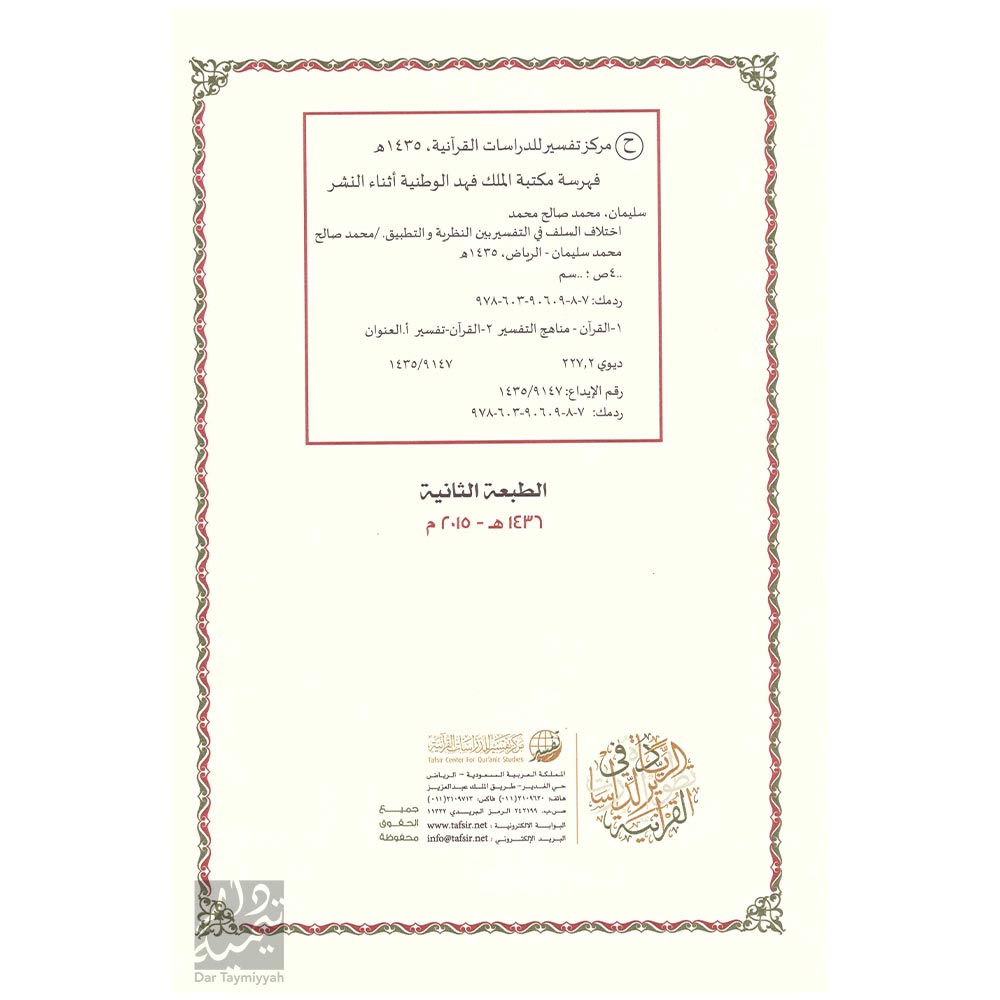 ح مركز تفسير للدراسات القرآنية، ١٤٣٥هـ
فهرسة مكتبة الملك فهد الوطنية أثناء النشر
سليمان، محمد صالح محمد
اختلاف السلف في التفسير بين النظرية والتطبيق. /محمد صالح
محمد سليمان - الرياض، ١٤٣٥هـ
٤٠٠ص ؛ ..سم
ردمك: ٧-٨-٩٠٦٠٩-٦٠٣-٩٧٨
١-القرآن - مناهج التفسير ٢-القرآن-تفسير أ.العنوان
ديوي ٢٢٧,٢ ١٤٣٥/٩١٤٧
رقم الإيداع: ١٤٣٥/٩١٤٧
ردمك: ٧-٨-٩٠٦٠٩-٦٠٣-٩٧٨
الطبعة الثانية
١٤٣٦ هـ - ٢٠١٥ م
تفسير
مركز تفسير للدراسات القرآنية
Tafsir Center For Qur'anic Studies
المملكة العربية السعودية - الرياض
حي الغدير- طريق الملك عبدالعزيز
هاتف: ٢١٠٩٦٢٠ (٠١١) فاكس: ٢١٠٩٧١٣ (٠١١)
ص.ب. ٢٤٢١٩٩ الرمز البريدي ١١٣٢٢
البوابة الالكترونية : www.tafsir.net
البريد الإلكتروني : info@tafsir.net
جميع
الحقوق
محفوظة
الريادة في
الدراسات
القرآنية
Dar Taymiyyah